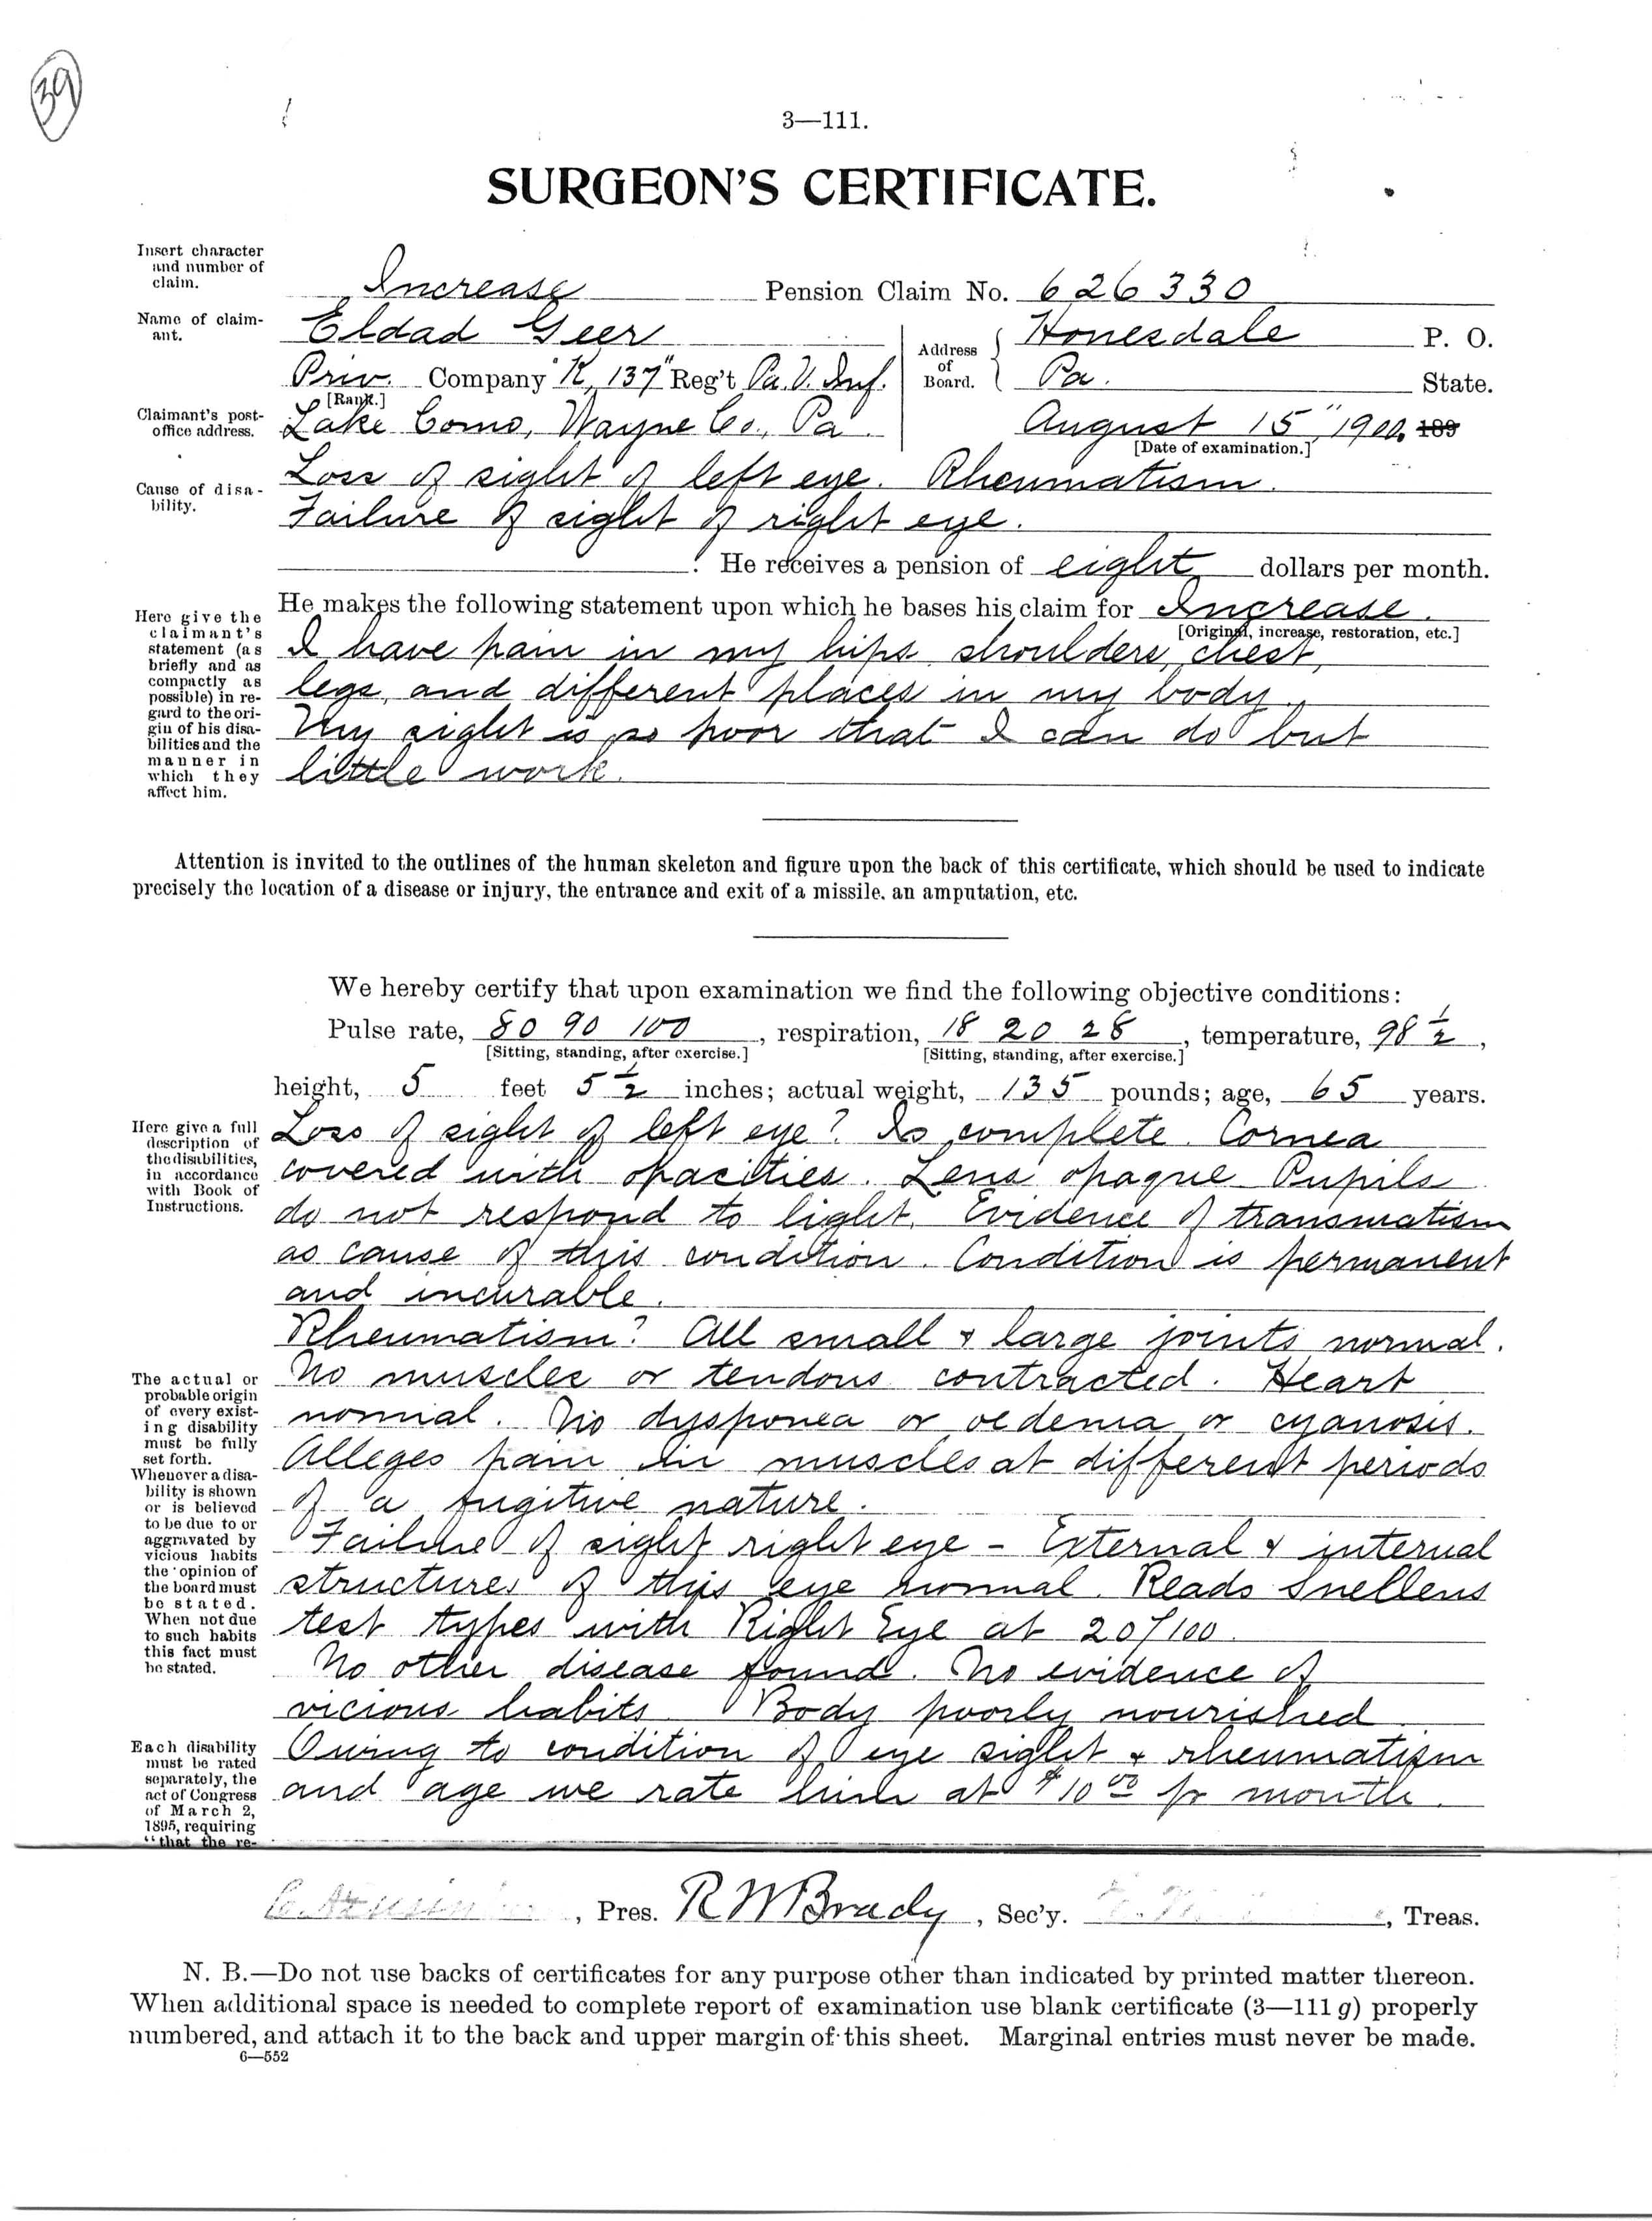 39
3—111.
SURGEON'S CERTIFICATE.
Insert character
and number of
claim.
Increase Pension Claim No. 626330
Name of claim-
ant.
Eldad Geer
Address
of
Board.
Honesdale P. O.
Pa. State.
Priv. Company "K, 137" Reg't Pa. V. Inf.
[Rank.]
Claimant's post-
office address.
Lake Como, Wayne Co., Pa.
August 15", 1900. 189
[Date of examination.]
Cause of disa-
bility.
Loss of sight of left eye. Rheumatism.
Failure of sight of right eye.
He receives a pension of eight dollars per month.
He makes the following statement upon which he bases his claim for Increase.
[Original, increase, restoration, etc.]
Here give the
claimant's
statement (as
briefly and as
compactly as
possible) in re-
gard to the ori-
gin of his disa-
bilities and the
manner in
which they
affect him.
I have pain in my hips shoulders, chest,
legs, and different places in my body.
My sight is so poor that I can do but
little work.
Attention is invited to the outlines of the human skeleton and figure upon the back of this certificate, which should be used to indicate
precisely the location of a disease or injury, the entrance and exit of a missile, an amputation, etc.
We hereby certify that upon examination we find the following objective conditions:
Pulse rate, 80 90 100, respiration, 18 20 28, temperature, 98 1/2,
[Sitting, standing, after exercise.] [Sitting, standing, after exercise.]
height, 5 feet 5 1/2 inches; actual weight, 135 pounds; age, 65 years.
Here give a full
description of
the disabilities,
in accordance
with Book of
Instructions.
Loss of sight of left eye? Is complete. Cornea
covered with opacities. Lens opaque Pupils
do not respond to light. Evidence of
as cause of this condition. Condition is permanent
and incurable.
Rheumatism? All small & large joints normal.
No muscles or tendons contracted. Heart
normal. No dysponea or oedema or cyanosis.
Alleges pain in muscles at different periods
of a fugitive nature.
Failure of sight right eye - External & internal
structures of this eye normal. Reads Snellens
test types with Right Eye at 20/100.
No other disease found. No evidence of
vicious habits Body poorly nourished
Owing to condition of eye sight & rheumatism
and age we rate him at $10 00 pr month.
The actual or
probable origin
of every exist-
ing disability
must be fully
set forth.
Whenever a disa-
bility is shown
or is believed
to be due to or
aggravated by
vicious habits
the opinion of
the board must
be stated.
When not due
to such habits
this fact must
be stated.
Each disability
must be rated
separately, the
act of Congress
of March 2,
1895, requiring
"that the re-
, Pres. R W Brady, Sec'y. , Treas.
N. B.—Do not use backs of certificates for any purpose other than indicated by printed matter thereon.
When additional space is needed to complete report of examination use blank certificate (3—111 g) properly
numbered, and attach it to the back and upper margin of this sheet. Marginal entries must never be made.
6—552